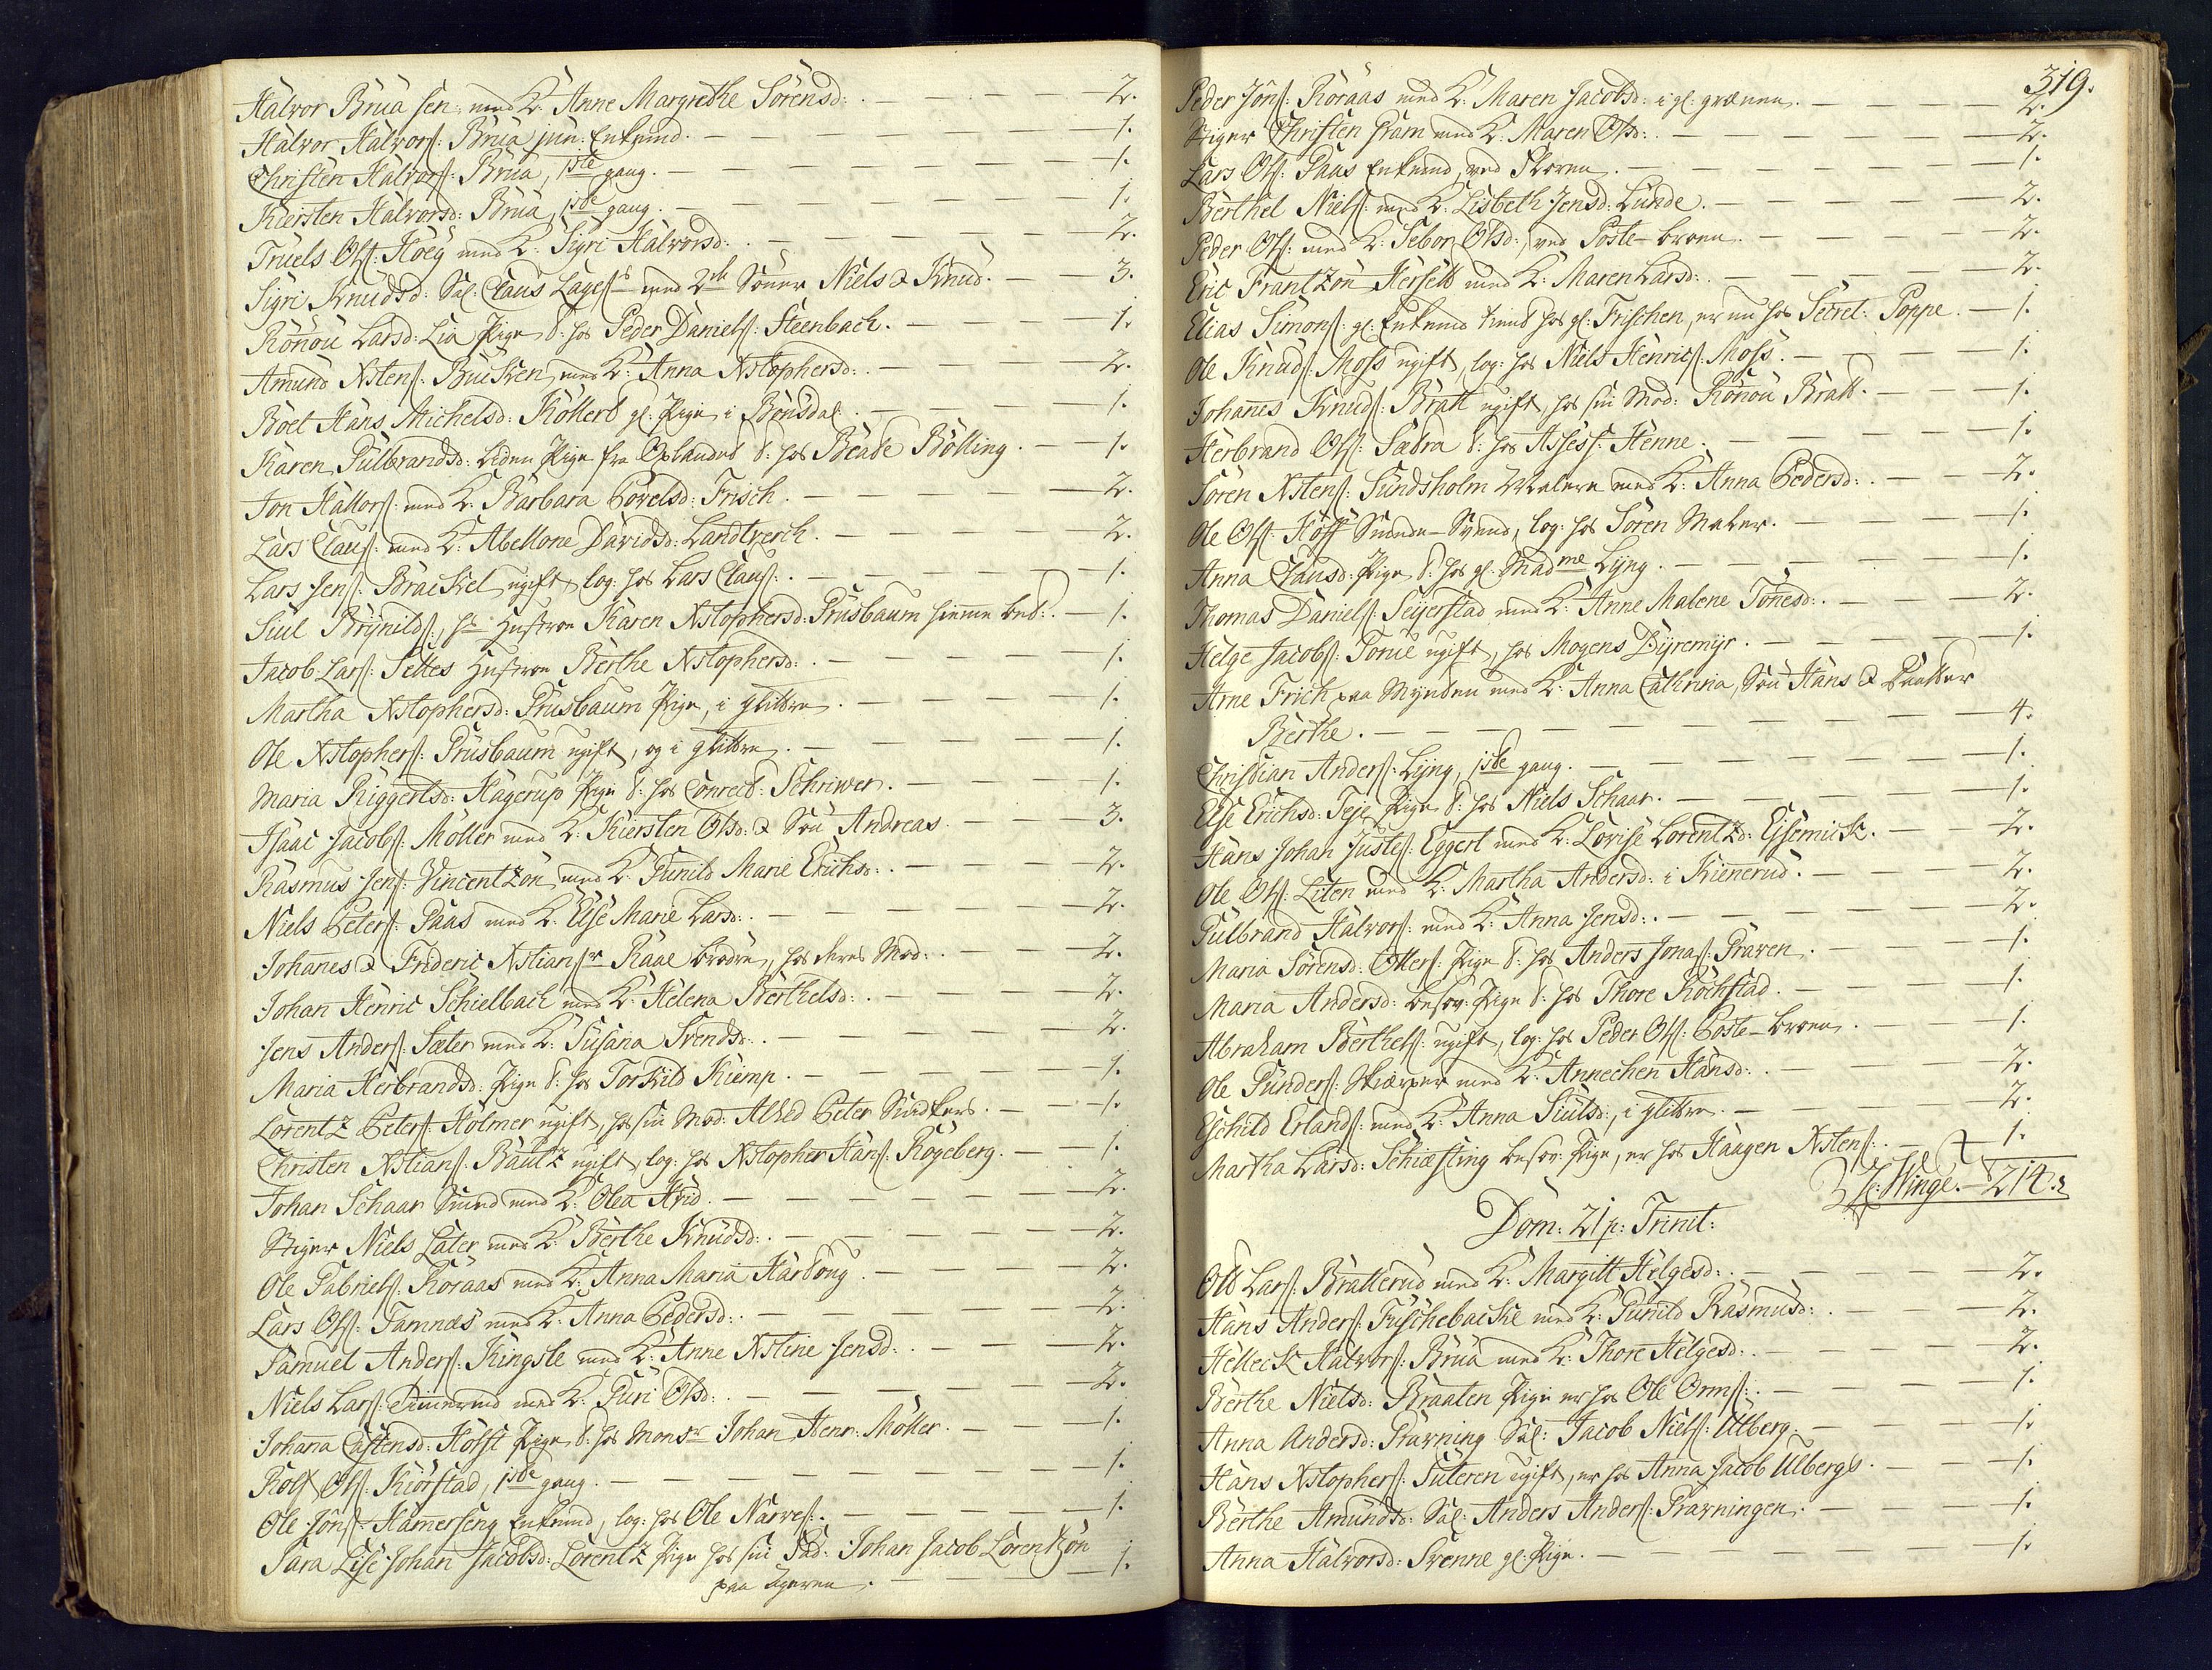 Halvor Brua sen: med K: Anne Margrethe Sörensd: . — — — 2.
Halvor Halvors: Brua jun: Enkemd. — — — — 1.
Christen Halvors: Brua, 1ste gang. — — — — 1.
Kiersten Halvorsd: Brua, 1ste gang. — — — — 1.
Truels Ols: Höeg med K: Sigri Halvorsd: . — — — 2.
Sigri Knudsd: Sal. Claus Lages med 2de Sönner Niels & Knud. — — 3.
Rönou Larsd: Lia Pige t: hos Peder Daniels: Steenbach. — — — 1.
Amund Xstens: Busken med K: Anna Xstophersd: . — — — 2.
Boel Hans Michelsd: Kollert gl. Pige i Bonsdal. — — — 1.
Karen Gulbrandsd: liden Pige fra Oplandet t: hos Beate Bölling. — 1.
Jon Hallors: med K: Barbara Povelsd: Frisch. — — — 2.
Lars Claus: med K: Abellone Davidsd: Landtverch. — — — 2.
Lars Jens: Brackel ugift, log: hos Lars Claus: . — — — 1.
Siul Brynilds:, hs Hustroe Karen Xstophersd: Prusbaum hiemme bet: . — 1.
Jacob Lars: Settes Hustroe Berthe Xstophersd: . — — — 1.
Martha Xstophersd: Prusbaum Pige, i Glittre. — — — 1.
Ole Xstophers: Prusbaum ugift, og i Glittre. — — — 1.
Maria Riggertsd: Hagerup Pige t: hos Conrect: Schriwer. — — — 1.
Isaac Jacobs: Möller med K: Kiersten Olsd: & Sön Andreas. — — 3.
Rasmus Jens: Vincentzön med K: Gunild Marie Erichsd: . — — — 2.
Niels Peters: Paas med K: Else Marie Larsd: . — — — 2.
Johanes & Frideric Xstiansr Raae brödre, hos deres Mod: . — — 2.
Johan Henric Schielbach med K: Helena Berthelsd: . — — — 2.
Jens Anders: Sæter med K: Susana Svendsd: . — — — 2.
Maria Herbrandsd: Pige t: hos Torkild Kiemp. — — — 1.
Lorentz Peters: Holmer ugift, hos sin Mod: Alhed Peter Snidkers. — — 1.
Christen Xstians: Bautz ugift, log: hos Xstopher Hans: Rogeberg. — 1.
Johan Schaar Smed med K: Olea Hvid. — — — 2.
Stiger Niels Later med K: Berthe Knudsd: . — — — 2.
Ole Gabriels: Roraas med K: Anna Maria Hartong. — — — 2.
Lars Ols: Tamnæs med K: Anna Pedersd: . — — — 2.
Samuel Anders: Kingsle med K: Anne Xstine Jensd: . — — 2.
Niels Lars: med K: Guri Olsd: . — — — 2.
Johana Castensd: Holst Pige t: hos Monsr Johan Henr: Möller. — — 1.
Rolf Ols: Kiörstad, 1ste gang. — — — 1.
Ole Jöns: Hamerseng Enkemd, log: hos Ole Narves: . — — — 1.
Sara Lise Johan Jacobsd: Lorentz Pige hos sin Fad: Johan Jacob Lorentzön
paa Ageren. — — — 1.
319.
Peder Jöns: Roraas med K: Maren Jacobsd: i gl: grænen. — — 2.
Stiger Christen Pram med K: Maren Olsd: . — — — 2.
Lars Ols: Paas Enkemd, ved Skoren. — — — 1.
Berthel Niels: med K: Lisbeth Jensd: Lunde. — — — 2.
Peder Ols: med K: Sebor Olsd:, ved Poste-broen. — — — 2.
Eric Frantzön Herseth med K: Maren Larsd: . — — — 2.
Elias Simons: gl. Enkemd hos gl: Frischen, er nu hos Secret: Poppe. — 1.
Ole Knuds: Moss ugift, log: hos Niels Henrics: Moss. — — — 1.
Johanes Knuds: Bratt ugift, hos sin Mod: Rönou Bratt. — — 1.
Herbrand Ols: Sæbra t: hos Assess: Henne. — — — 1.
Sören Xstens: Sundsholm Malere med K: Anna Pedersd: . — — 2.
Ole Ols: Hoff Svend, log: hos Sören Maler. — — — 1.
Anna Clausd: Pige t: hos gl: Madme Lyng. — — — 1.
Thomas Daniels: Seyerstad med K: Anne Malene Tönesd: . — — 2.
Helge Jacobs: Torue ugift, hos Mogens Dyremyr. — — — 1.
Arne Frich paa Mynten med K: Anna Cathrina, Sön Hans & Daatter
Berthe. — — — 4.
Christian Anders: Lyng, 1ste gang. — — — 1.
Else Erichsd: Teje Pige t: hos Niels Schaar. — — — 1.
Hans Johan Justes: Eggert med K: Lovise Lorentzd: Ejsemick. — 2.
Ole Ols: Liten med K: Martha Andersd: i Kienerud. — — — 2.
Gulbrand Halvors: med K: Anna Jensd: . — — — 2.
Maria Sörensd: Otters: Pige t: hos Anders Jonas: Praven. — — 1.
Maria Andersd: besov: Pige t: hos Thore Röchstad. — — — 1.
Abraham Berthels: ugift, log: hos Peder Ols: Poste-broen. — — 1.
Ole Gunders: Skræper med K: Annechen Hansd: . — — — 2.
Eschild Erlands: med K: Anna Siulsd:, i Glittre. — — — 2.
Martha Larsd: Schiæsting besov: Pige, er hos Haagen Xstens: . — 1.
H: Winge. — 214.
Dom: 21 p: Trinit:
Ole Lars: Bratterud med K: Margitt Helgesd: . — — — 2.
Hans Anders: Fuschebacke med K: Gunild Rasmusd: . — — — 2.
Helleck Halvors: Brua med K: Thore Helgesd: . — — — 2.
Berthe Nielsd: Braaten Pige er hos Ole Orms: . — — — 1.
Anna Andersd: Pravning Sal: Jacob Niels: Ulberg. — — — 1.
Hans Xstophers: Suteren ugift, er hos Anna Jacob Ulbergs. — — 1.
Berthe Amundsd: Sal: Anders Anders: Pravningen. — — — 1.
Anna Halvorsd: Svenne gl: Pige. — — — 1.